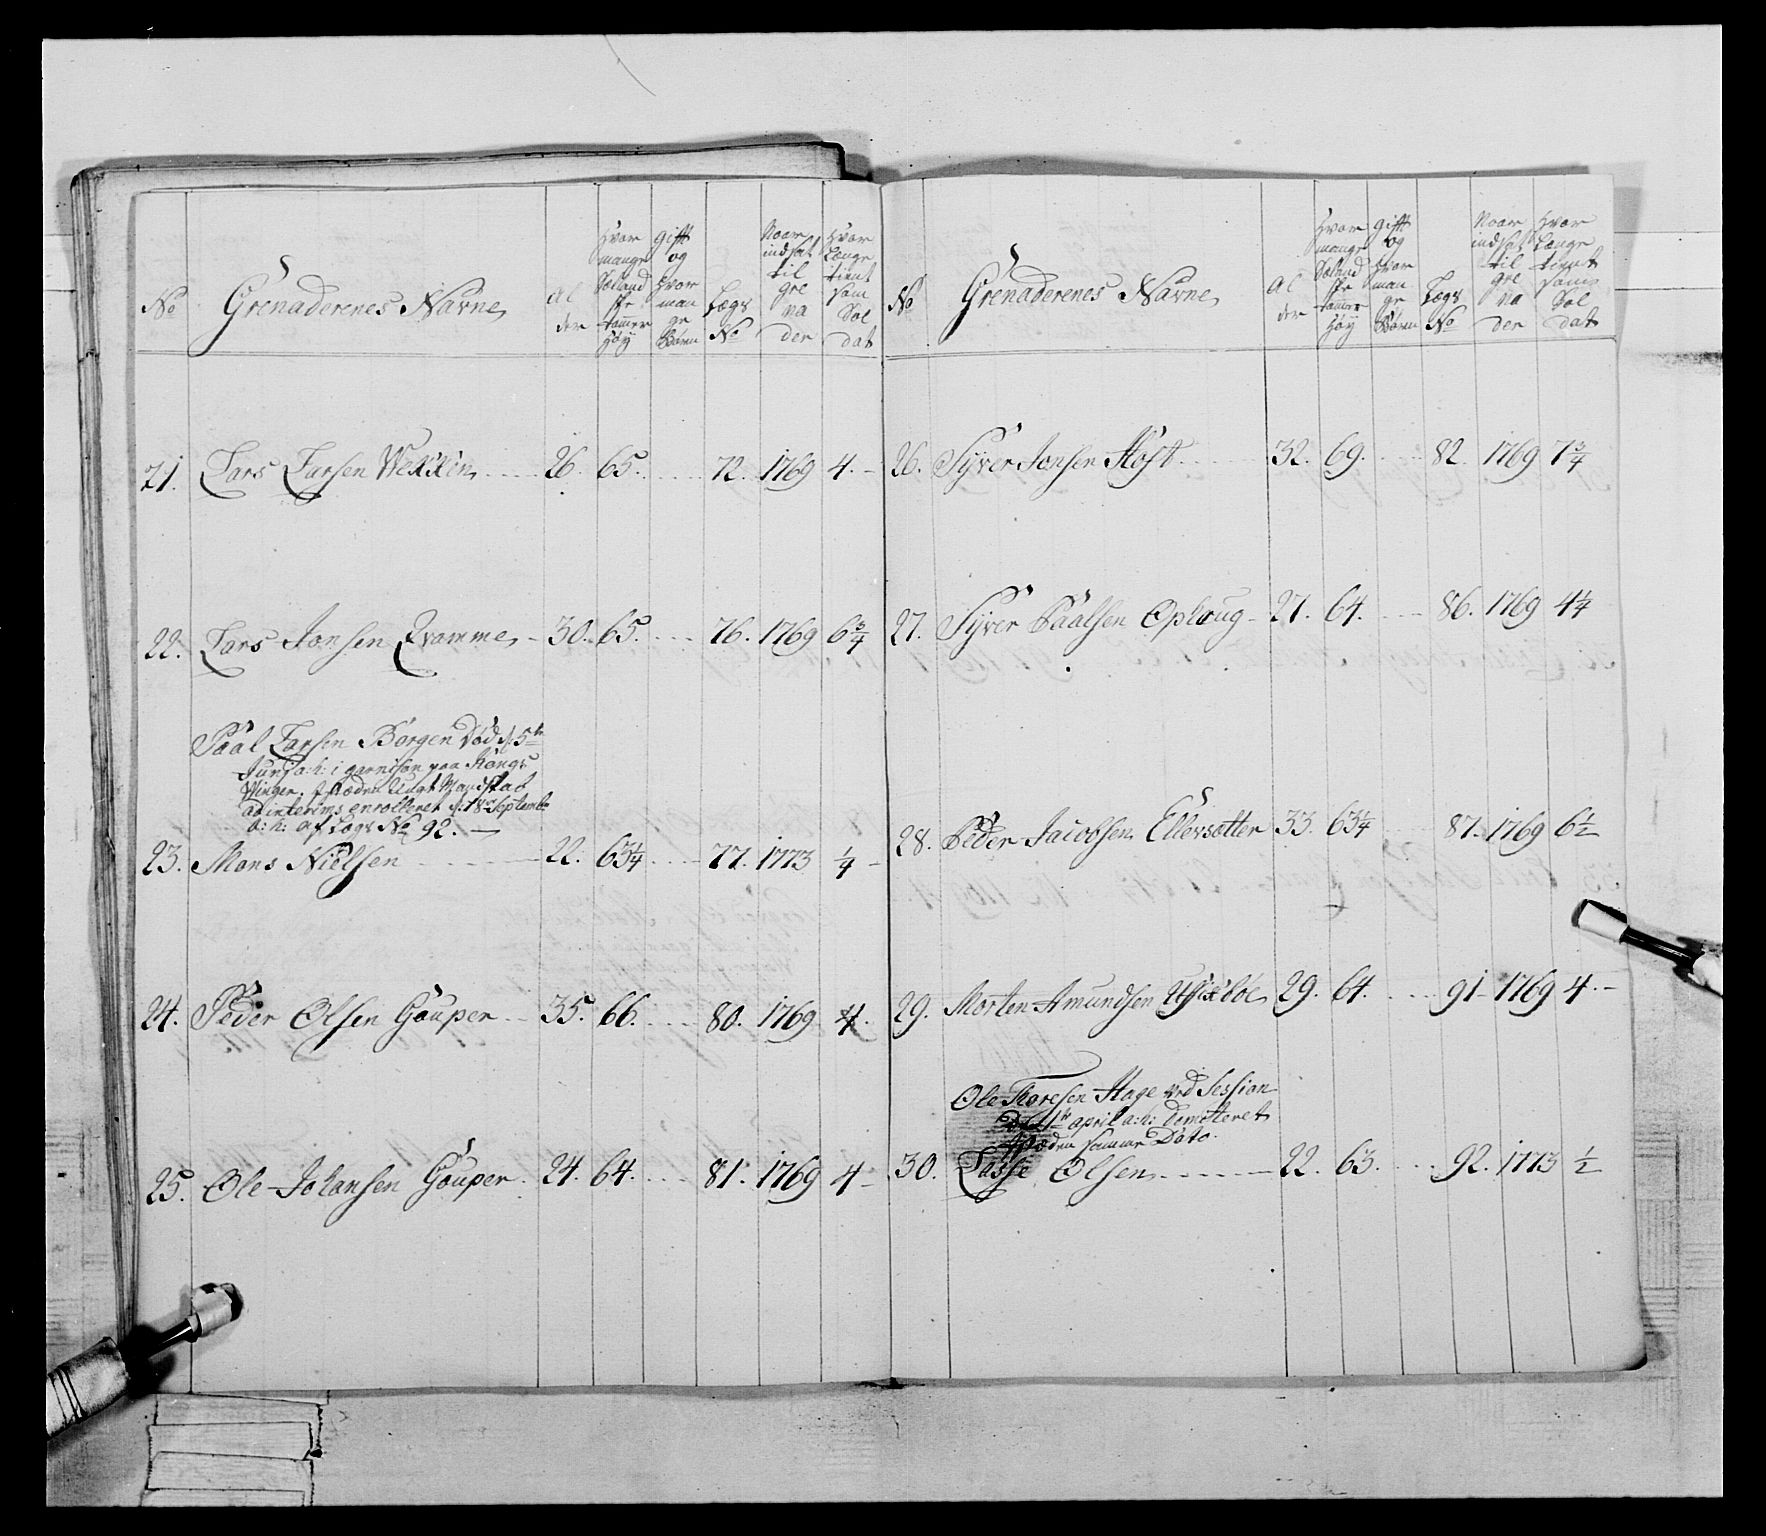 No Grenaderenes Navne Al der Hvor mange Sælandske tommer Høÿ Gift og Hvor mange Børn Lægs No Naar indsat til grenader Hvor Længe tient som Soldat
21. Lars Larsen 26. 65. 72. 1769 4.
22. Lars Jonsen Qvamme 30. 65. 76. 1769 6 3/4
Paal Larsen Børgen død d: 5te
Junÿ a: h: i garnison paa Kongs
Winger. Udgt Mandskab
ad interims enrolleret d: 18de Septembr
a: h: af Lægs No 92.
23. Mons Nielsen 22. 63 1/4 77. 1773 1/4
24. Peder Olsen Gouper 35. 66. 80. 1769 4.
25. Ole Johansen Gouper 24. 64. 81. 1769 4
No Grenaderenes Navne Al der Hvor mange Sælandske tommer Høÿ Gift og Hvor mange Børn Lægs No Naar indsat til grenader Hvor Længe tient som Soldat
26. Syver Jonsen 32. 69. 82. 1769 7 3/4
27. Syver Paalsen Oploug 27. 64. 86. 1769 4 1/4
28. Peder Jacobsen Ellersætter 33. 63 1/4 87. 1769 6 1/2
29. Morten Amundsen 29. 64. 91 1769 4.
Ole Thoresen Hage ved Session
april a: h: demitteret
samme Dato.
30. Lasse Olsen 22. 63. 92. 1773 1/2